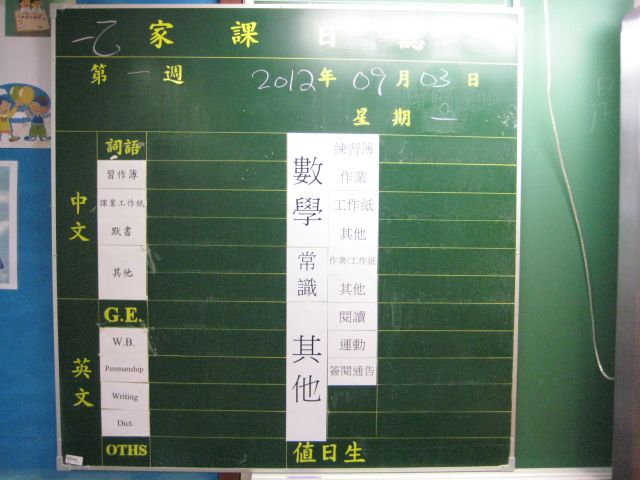 一乙 家課日誌
第一週 2012年09月03日
星期一
中文
詞語
習作簿
課業工作紙
默書
其他
英文
G.E.
W.B.
Penmanship
Writing
Dict.
OTHS
數學
練習簿
作業
工作紙
其他
常識
作業/工作紙
其他
其他
閱讀
運動
簽閱通告
值日生